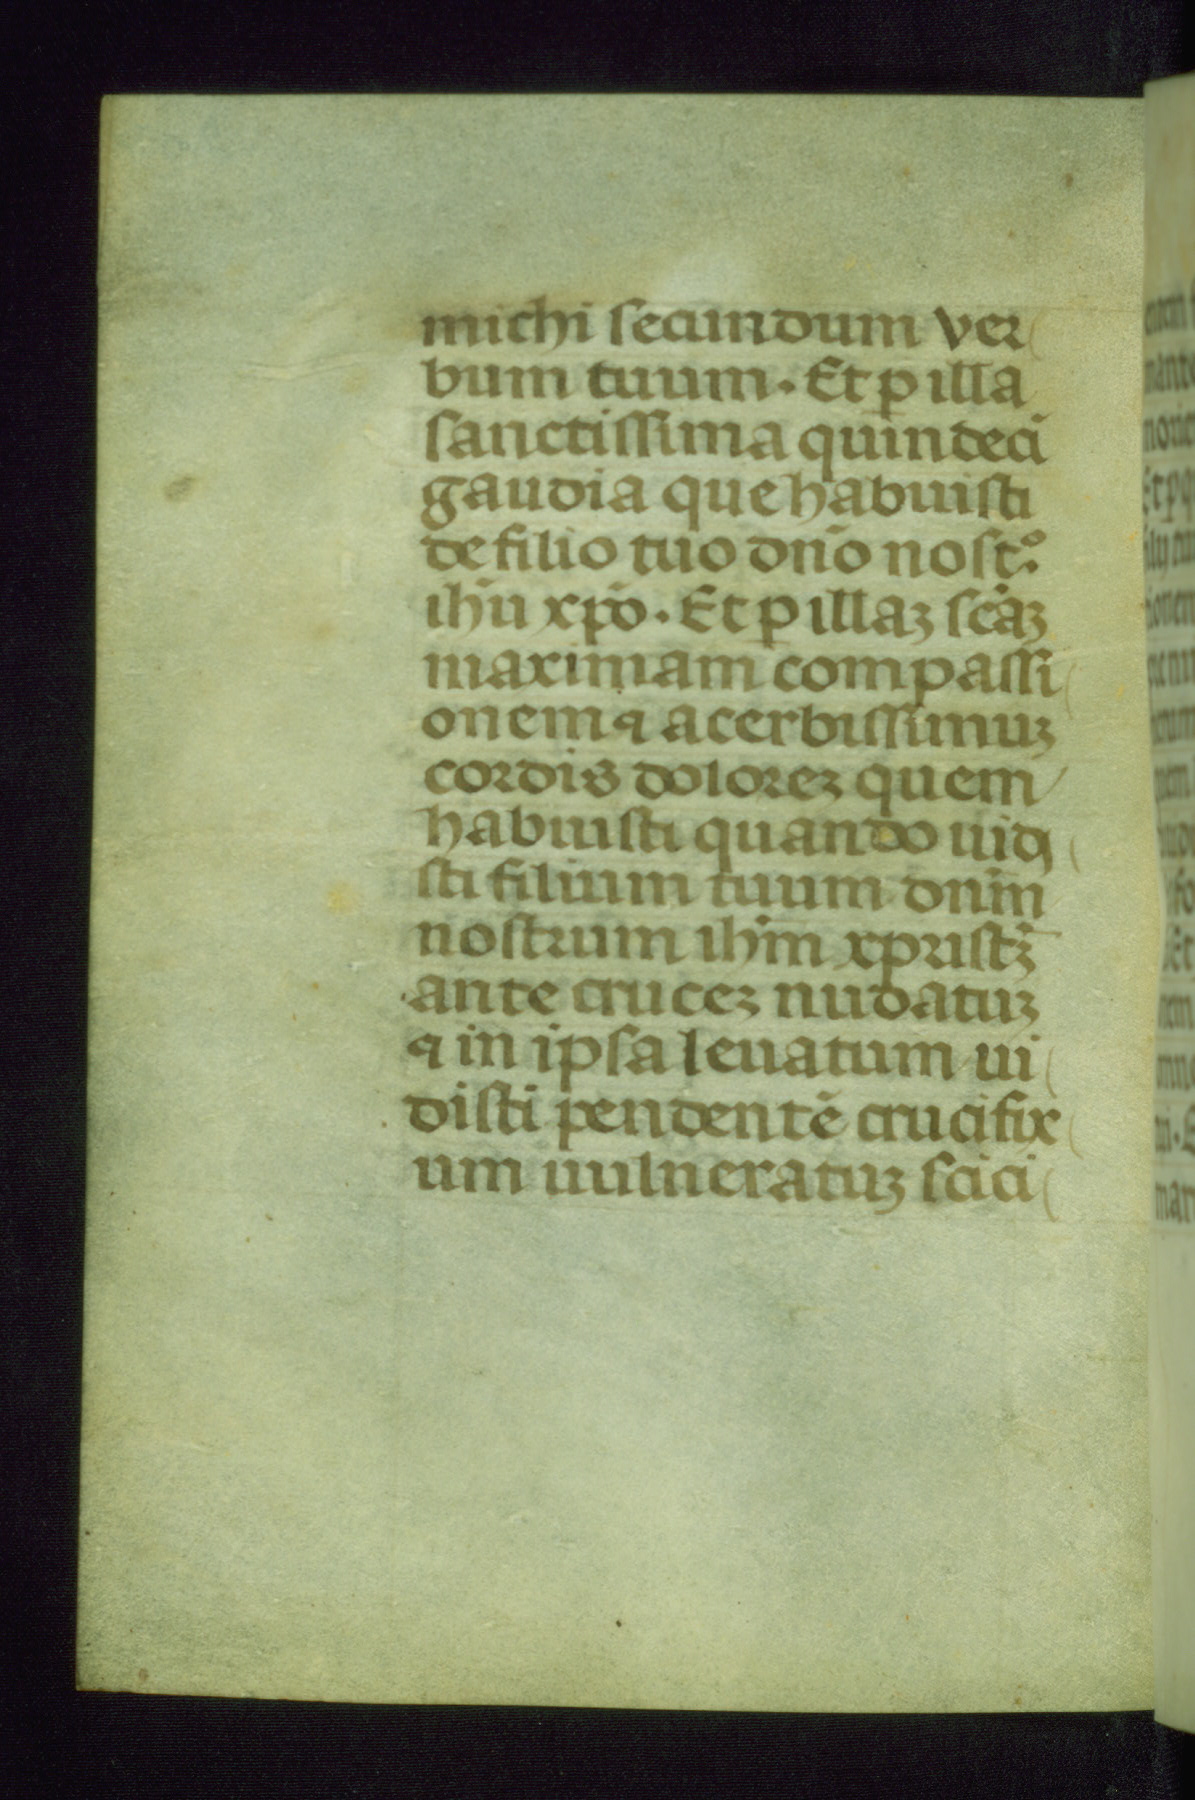 michi secundum ver
bum tuum. Et ꝑ illa
sanctissima quindeci
gaudia que habuisti
de filio tuo dño nost.º
ihũ xp̃o. Et ꝑ illaꝫ scãꝫ
maximam compassi
onem ⁊ acerbissimuꝫ
cordis doloreꝫ quem
habuisti quando uidi
sti filium tuum dnm̃
nostrum ihm̃ xpristꝫ̃
ante cruceꝫ nudatuꝫ
⁊ in ipsa leuatum ui
disti pendentẽ crucifix
um uulneratuꝫ scici